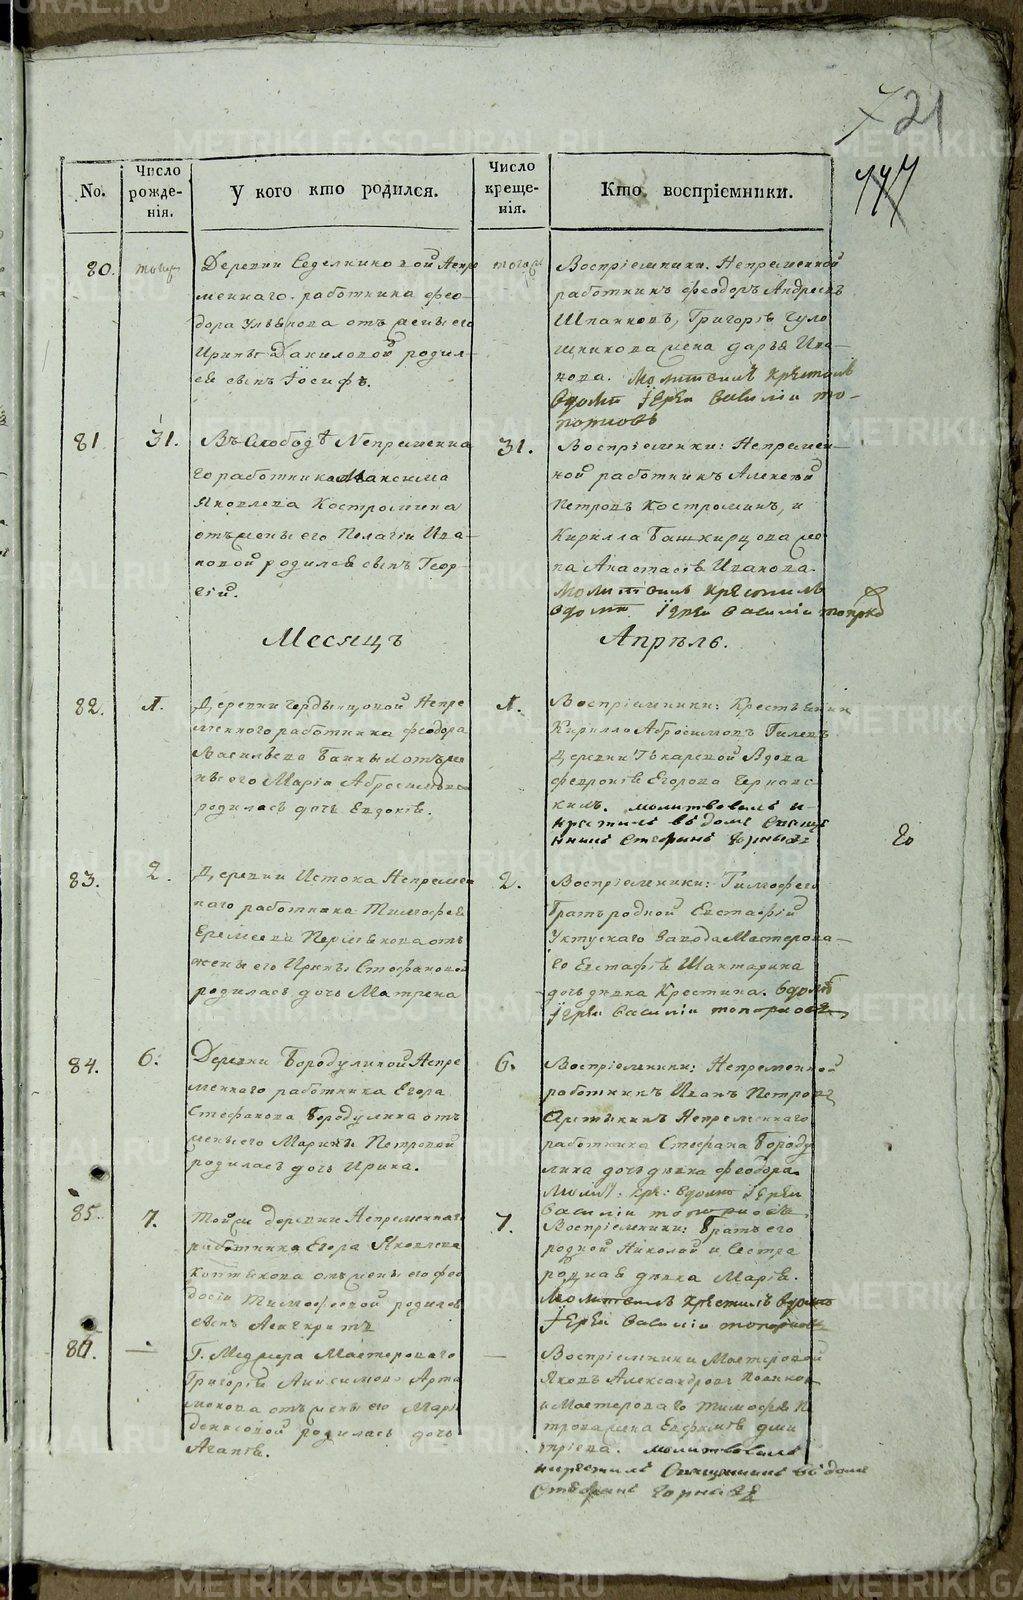 721
177
No.
Число рожде-нія.
У кого кто родился.
Число креще-нія.
Кто воспріемники.
80.
тогож
Деревни Седелниковой Непре
меннаго работника Фео-
дора от жены его
Ирины Даниловой родил-
ся сынъ Іосифъ.
тогож
Воспріемники. Непременной
работникъ Феодоръ Андреевъ
Шпанковъ, Григорія
жена Дарья Ива-
нова. Молитвилъ крѣстилъ
вдоми Іерѣи Василіи То-
порковъ
81
31.
Въ Слободѣ Непременна
го работника Максима
Яковлева Костромина
отъ жены его Пелагіи Ива-
новой родился сынъ Геор-
гій.
31.
Воспріемники: Непремен-
ной работникъ Алексей
Петровъ Костроминъ, и
Кирилла Башкирцова же-
на Анастасія Иванова.
Молитвилъ крѣстилъ
вдоми Іерѣи Василіи Топорков
Месяцъ
Апрѣль.
82.
1.
Деревни Непре
меннаго работника Феодора
Васильева Банных отъ же
ны его Маріи Абросимовой
родилась дочь Евдокія.
1.
Воспріемники: Крестьянин
Кирилло Абросимовъ Гилевъ
Деревни Токаревой Вдова
Феврония Егорова Чернавс-
кихъ. молитвовалъ и
крестилъ въ доме Свяще
нникъ Стефанъ Горныхъ
20
83.
2.
Деревни Истока Непремен
наго работника Тимофея
Еремеева Пермякова отъ
жены его Ирины Стефановой
родилась дочь Матрена
2.
Воспріемники: Тимофею
братъ родной Евстафій
Уктускаго Завода Мастерова-
го Евстафія Шахтарина
дочь дѣвка Крестина. Вдомѣ
Іерѣи Василіи Топорковъ
84.
6.
Деревни Бородулиной Непре
меннаго работника Егора
Стефанова Бородулина отъ
жены его Марины Петровой
родилась дочь Ирина.
6.
Воспріемники: Непременной
работникъ Иванъ Петровъ
Непременнаго
работника Стефана Бороду
лина дочь дѣвка Феодора.
Молит: кре: вдоми Іерѣи
Василіи Топорковъ.
85.
7.
Тойже деревни Непременнаго
работника Егора Яковлева
Коптякова отъ жены его Фео
досіи Тимофеевой родился
сынъ
7.
Воспріемники: братъ его
родной Николай и Сестра
родная дѣвка Марія.
Молитвилъ крѣстилъ вдоми
Іерѣи Василіи Топорковъ
86.
—
Г. Медмера Мастероваго
Григорія Анисимова Арта
монова отъ жены его Маріи
Денисовой родилась дочь
Агапія.
—
Воспріемники Мастеровой
Яковъ Александровъ Новиков
и Мастероваго Тимофея Пе
трова жена Евфимія Дми
тріева. молитвовалъ
и крестилъ Священникъ въ доме
Стефанъ Горныхъ